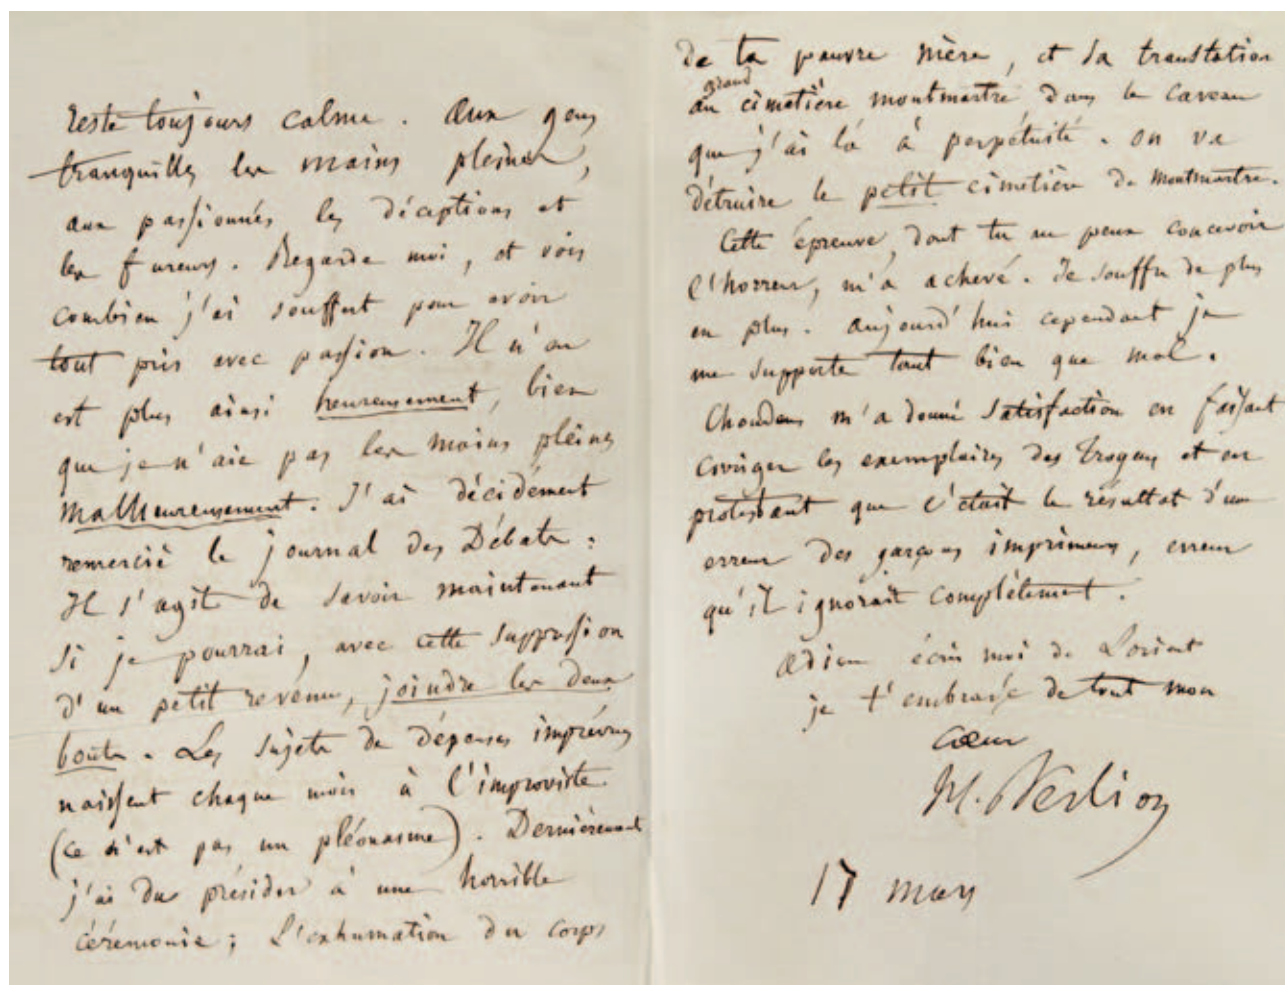 reste toujours calme. Aux gens
tranquilles les mains pleines,
aux passionnés les déceptions et
les fureurs. Regarde moi, et vois
combien j'ai souffert pour avoir
tout pris avec passion. Il n'en
est plus ainsi heureusement, bien
que je n'aie pas les mains pleines
malheureusement. J'ai décidément
remercié le journal des Débats.
Il s'agit de savoir maintenant
si je pourrai, avec cette suppression
d'un petit revenu, joindre les deux
bouts. Les sujets de dépenses imprévues
naissent chaque mois à l'improviste
(ce n'est pas un pléonasme). Dernièrement
j'ai du présider à une horrible
cérémonie; L'exhumation du corps
de ta pauvre mère, et sa translation
au grand cimetière montmartre dans le caveau
que j'ai là à perpétuité. On va
détruire le petit cimetière de Montmartre.
Cette épreuve, dont tu ne peux concevoir
l'horreur, m'a achevé. Je souffre de plus
en plus. Aujourd'hui cependant je
me supporte tant bien que mal.
Choudens m'a donné satisfaction en faisant
corriger les exemplaires des Troyens et en
protestant que c'était le résultat d'une
erreur des garçons imprimeurs, erreur
qu'il ignorait complètement.
Adieu écris moi de Lorient
je t'embrasse de tout mon
cœur
H. Berlioz
17 mars